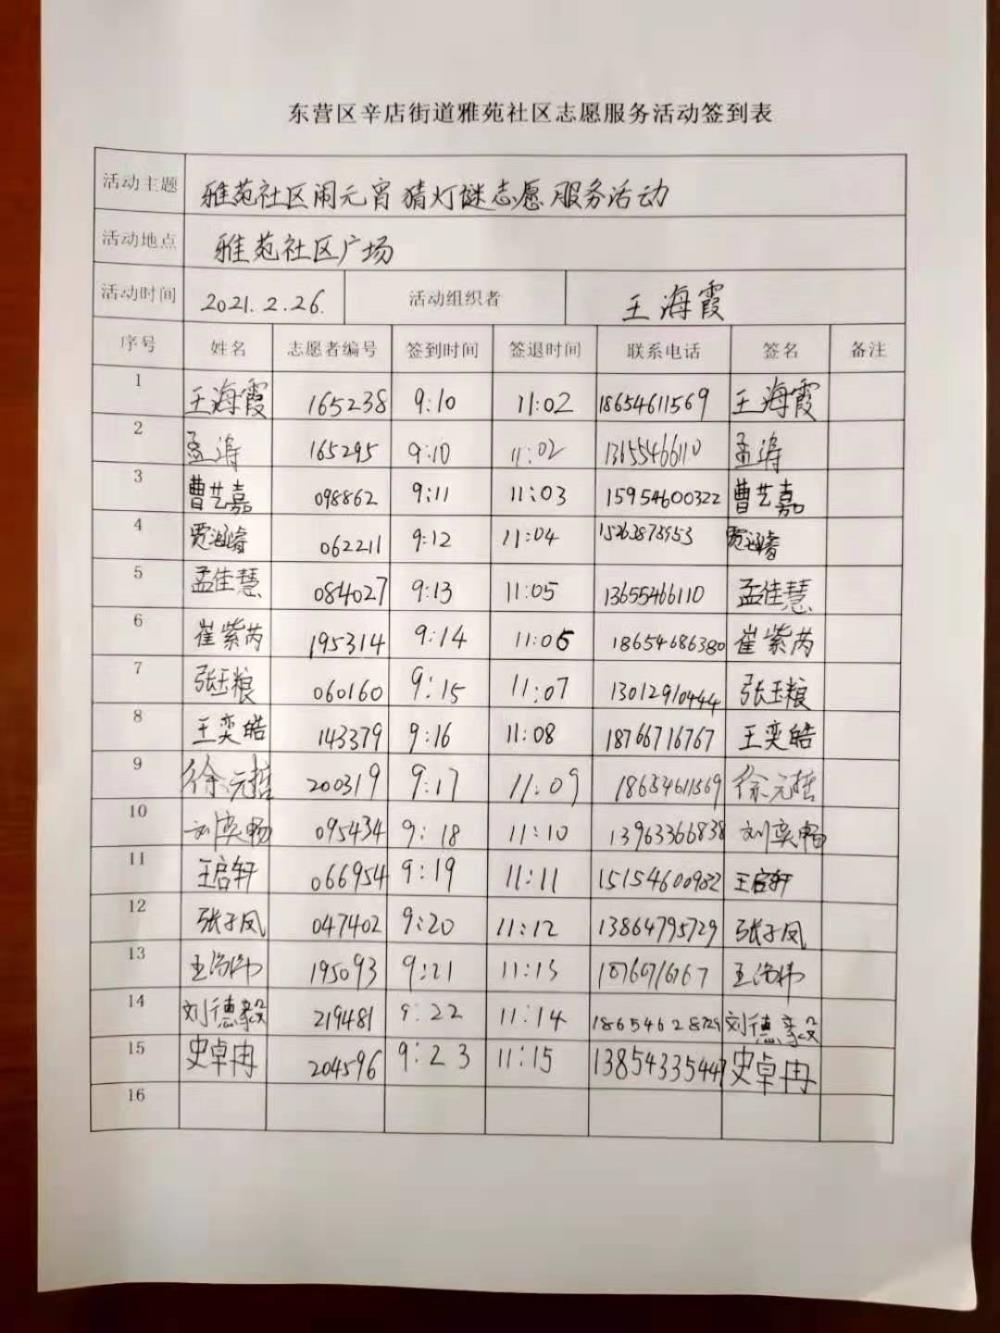 东营区辛店街道雅苑社区志愿服务活动签到表
活动主题 雅苑社区闹元宵猜灯谜志愿服务活动
活动地点 雅苑社区广场
活动时间 2021.2.26. 活动组织者 王海霞
序号 姓名 志愿者编号 签到时间 签退时间 联系电话 签名 备注
1 王海霞 165238 9:10 11:02 18654611569 王海霞
2 孟涛 165295 9:10 11:02 13655466110 孟涛
3 曹艺嘉 098862 9:11 11:03 15954600322 曹艺嘉
4 062211 9:12 11:04
5 孟佳慧 084027 9:13 11:05 13655466110 孟佳慧
6 崔紫芮 195314 9:14 11:06 18654686380 崔紫芮
7 张玉粮 060160 9:15 11:07 13012910444 张玉粮
8 王奕皓 143379 9:16 11:08 18766716767 王奕皓
9 徐元哲 200319 9:17 11:09 18654611569 徐元哲
10 刘奕畅 095434 9:18 11:10 13963366838 刘奕畅
11 王启轩 066954 9:19 11:11 15154600982 王启轩
12 张子凤 047402 9:20 11:12 13864795729 张子凤
13 195093 9:21 11:13
14 刘德毅 219481 9:22 11:14 刘德毅
15 史卓冉 204596 9:23 11:15 13854335447 史卓冉
16